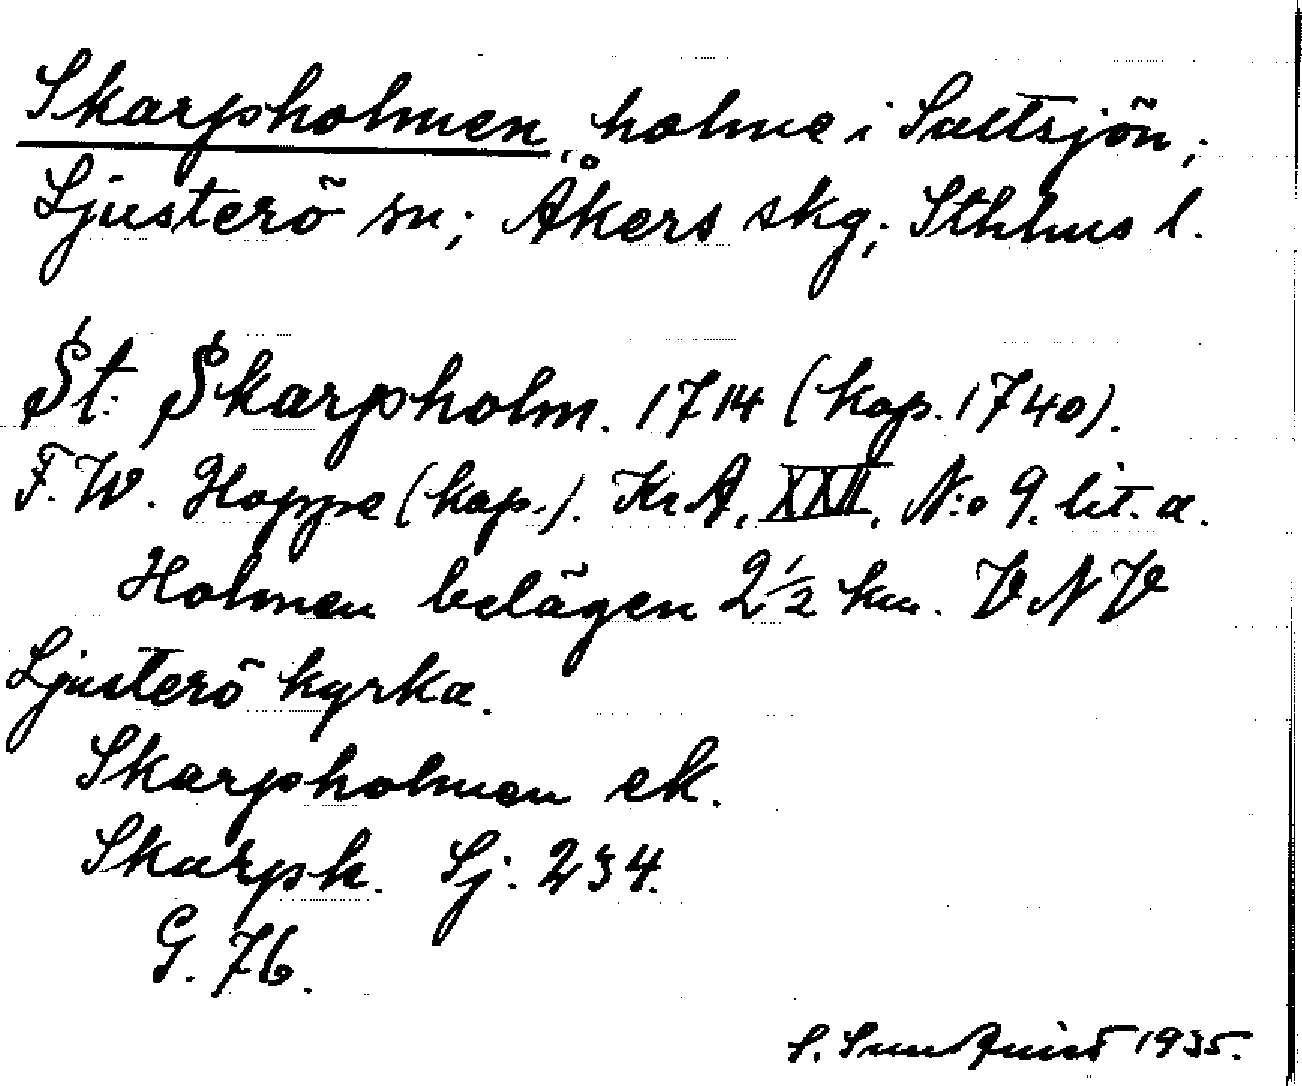 Skarpholmen, holme i Saltsjön;
Ljusterö sn; Åkers skg; Sthlms l.
St: Skarpholm. 1714 (kop. 1740).
F. W. Hoppe (kop.). KrA. XXII. N:o 9. lit. a.
Holmen belägen 2 1/2 km. VNV
Ljusterö kyrka.
Skarpholmen ek.
Skarph. Sj. 234.
G. 76.
S. Sundquist 1935.